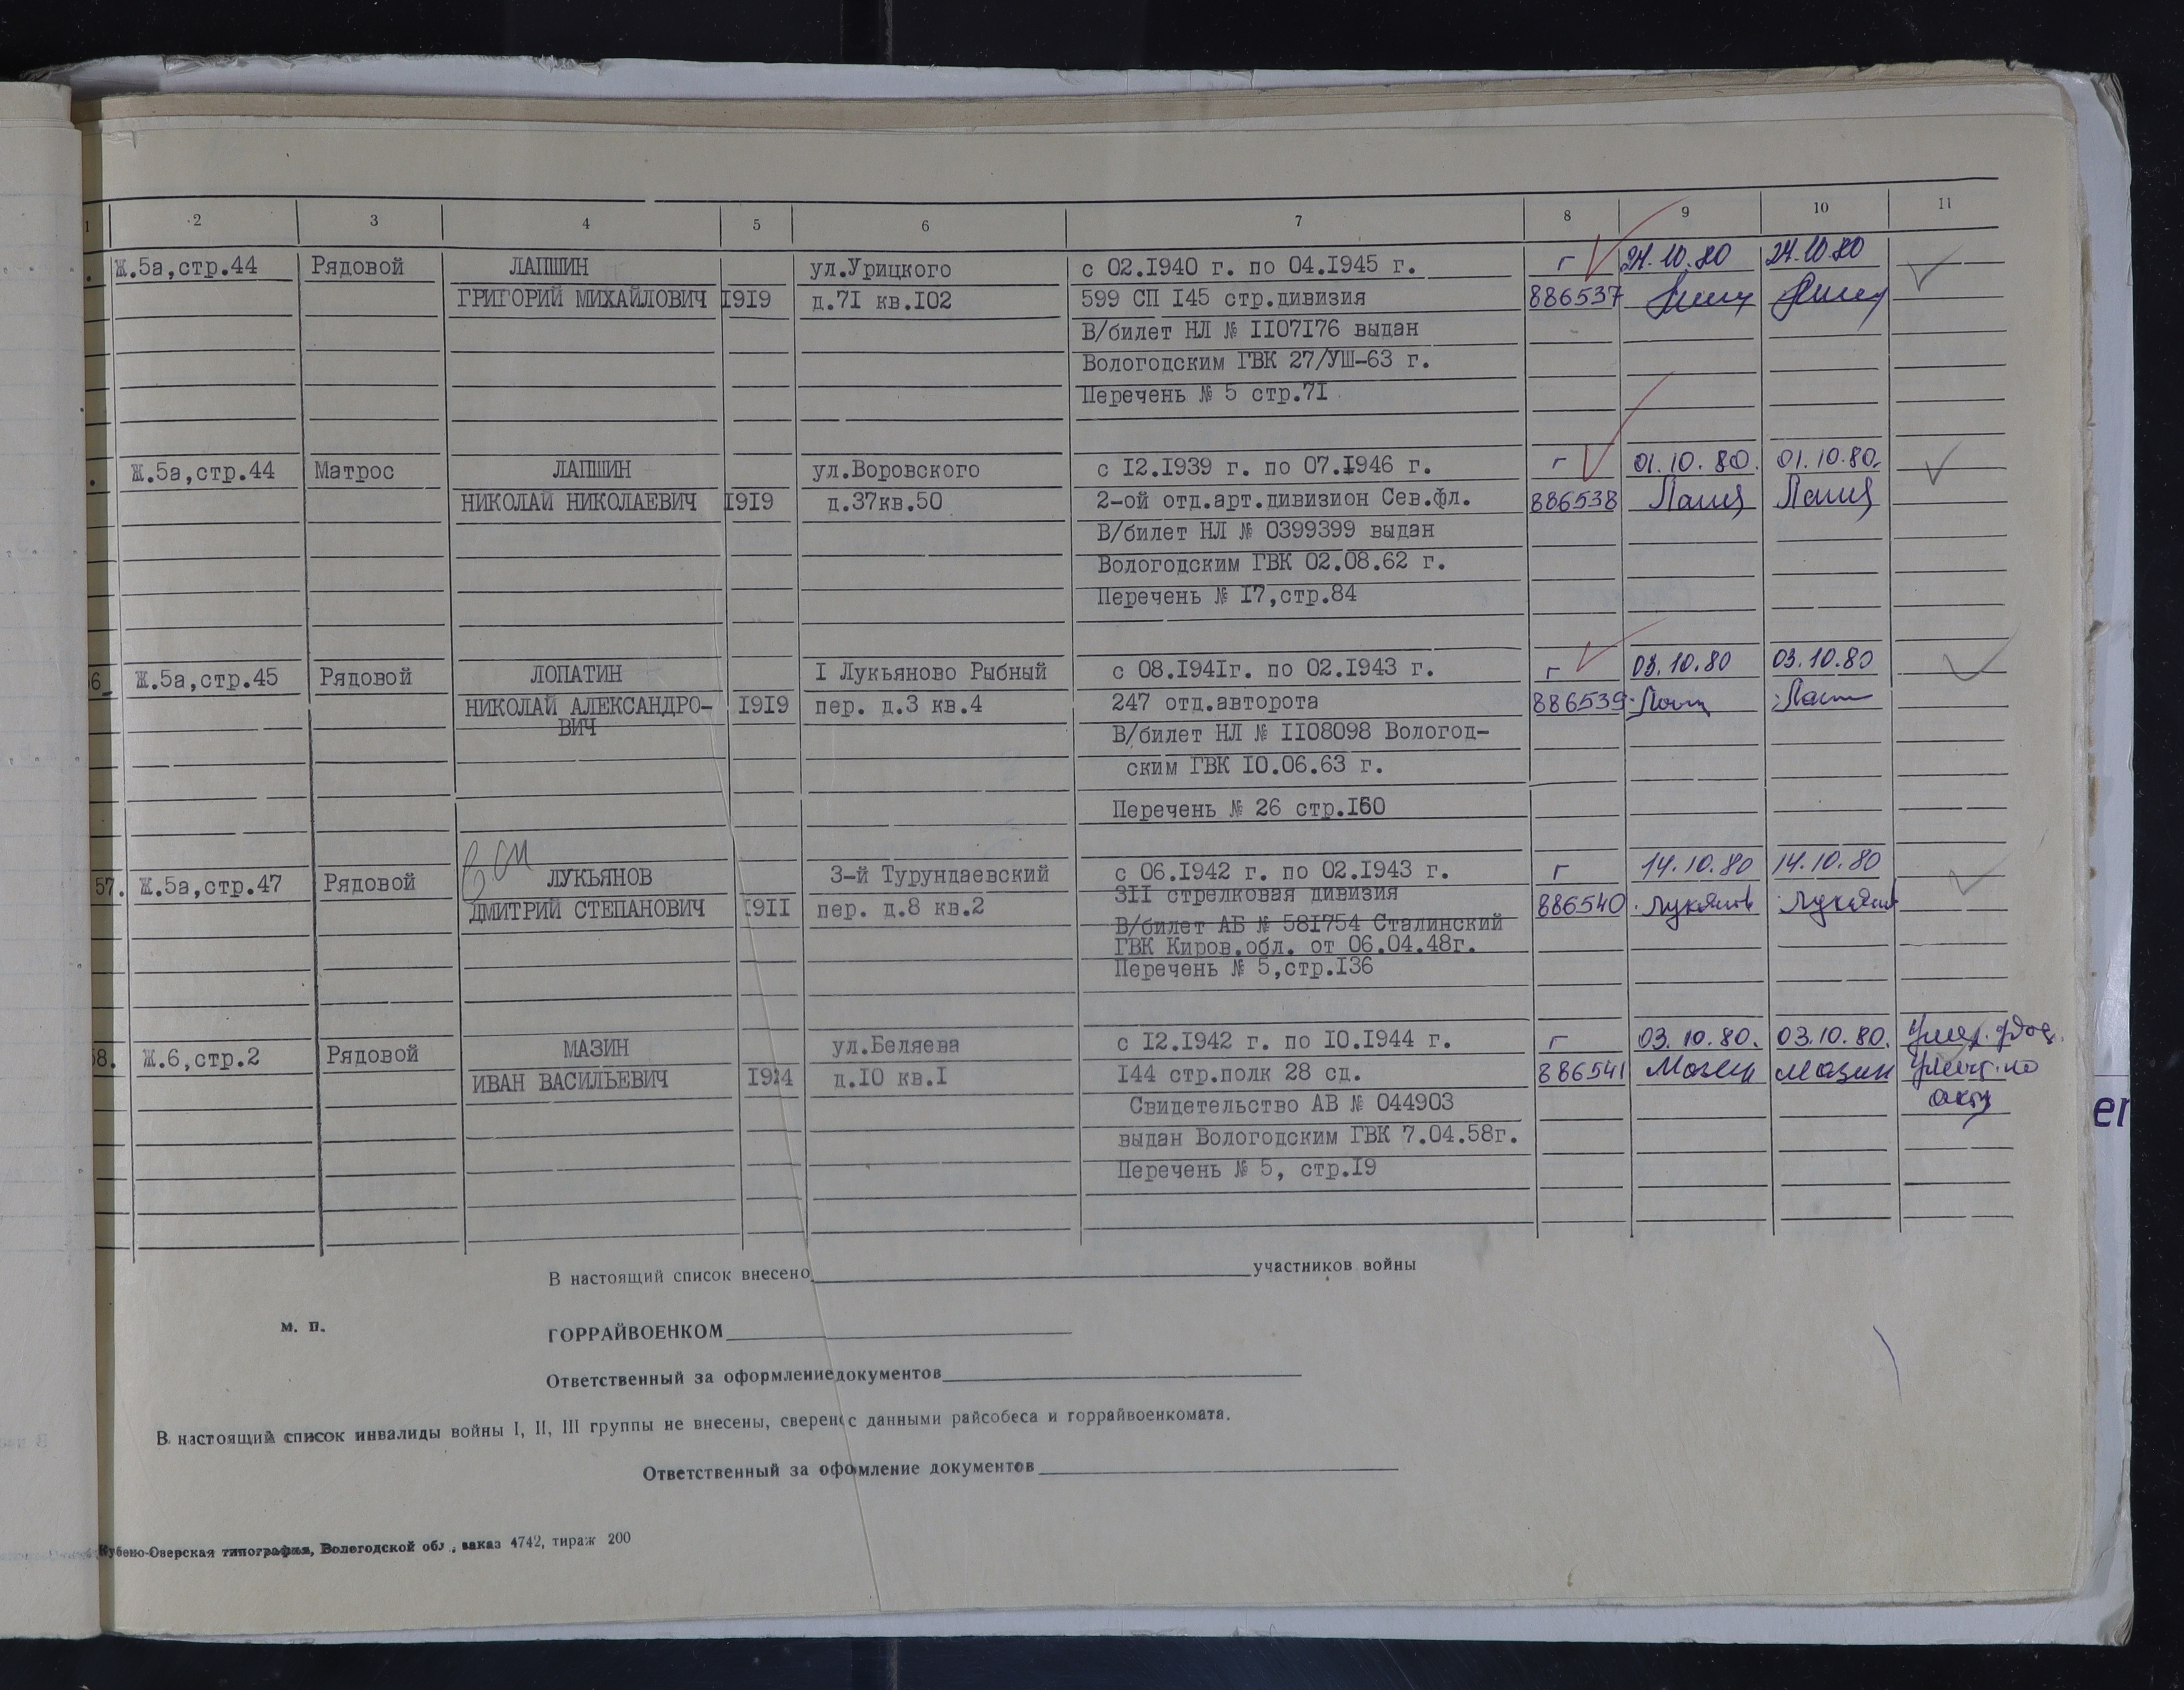 1 2 3 4 5 6 7 8 9 10 11
. Ж.5а,стр.44 Рядовой ЛАПШИН ул.Урицкого с 02.I940 г. по 04.I945 г. г 24.10.80 24.10.80
ГРИГОРИЙ МИХАЙЛОВИЧ I9I9 д.7I кв.I02 599 СП I45 стр.дивизия 886537
В/билет НЛ № II07I76 выдан
Вологодским ГВК 27/УШ-63 г.
Перечень № 5 стр.7I
. Ж.5а,стр.44 Матрос ЛАПШИН ул.Воровского с I2.I939 г. по 07.I946 г. г 01.10.80. 01.10.80.
НИКОЛАЙ НИКОЛАЕВИЧ I9I9 д.37кв.50 2-ой отд.арт.дивизион Сев.фл. 886538
В/билет НЛ № 0399399 выдан
Вологодским ГВК 02.08.62 г.
Перечень № I7,стр.84
6 Ж.5а,стр.45 Рядовой ЛОПАТИН I Лукьяново Рыбный с 08.I94Iг. по 02.I943 г. г 03.10.80 03.10.80
НИКОЛАЙ АЛЕКСАНДРО- I9I9 пер. д.3 кв.4 247 отд.авторота 886539
ВИЧ В/билет НЛ № II08098 Вологод-
ским ГВК I0.06.63 г.
Перечень № 26 стр.I60
57. Ж.5а,стр.47 Рядовой ЛУКЬЯНОВ 3-й Турундаевский с 06.I942 г. по 02.I943 г. г 14.10.80 14.10.80
ДМИТРИЙ СТЕПАНОВИЧ I9II пер. д.8 кв.2 3II стрелковая дивизия 886540. Лукянов Лукянов
В/билет АБ № 58I754 Сталинский
ГВК Киров.обл. от 06.04.48г.
Перечень № 5,стр.I36
58. Ж.6,стр.2 Рядовой МАЗИН ул.Беляева с I2.I942 г. по I0.I944 г. г 03.10.80. 03.10.80.
ИВАН ВАСИЛЬЕВИЧ I924 д.I0 кв.I I44 стр.полк 28 сд. 886541 Мазин Мазин
Свидетельство АВ № 044903 акту
выдан Вологодским ГВК 7.04.58г.
Перечень № 5, стр.I9
В настоящий список внесено участников войны
м. п. ГОРРАЙВОЕНКОМ
Ответственный за оформление документов
В настоящий список инвалиды войны I, II, III группы не внесены, сверен с данными райсобеса и горрайвоенкомата.
Ответственный за офомление документов
Кубено-Озерская типография, Вологодской обл., заказ 4742, тираж 200